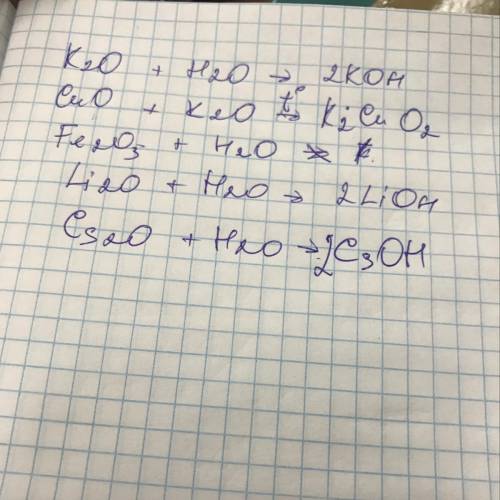 K₂O + H₂O → 2KOH
CuO + K₂O t°→ K₂CuO₂
Fe₂O₃ + H₂O ↛
Li₂O + H₂O → 2LiOH
Cs₂O + H₂O → 2CsOH